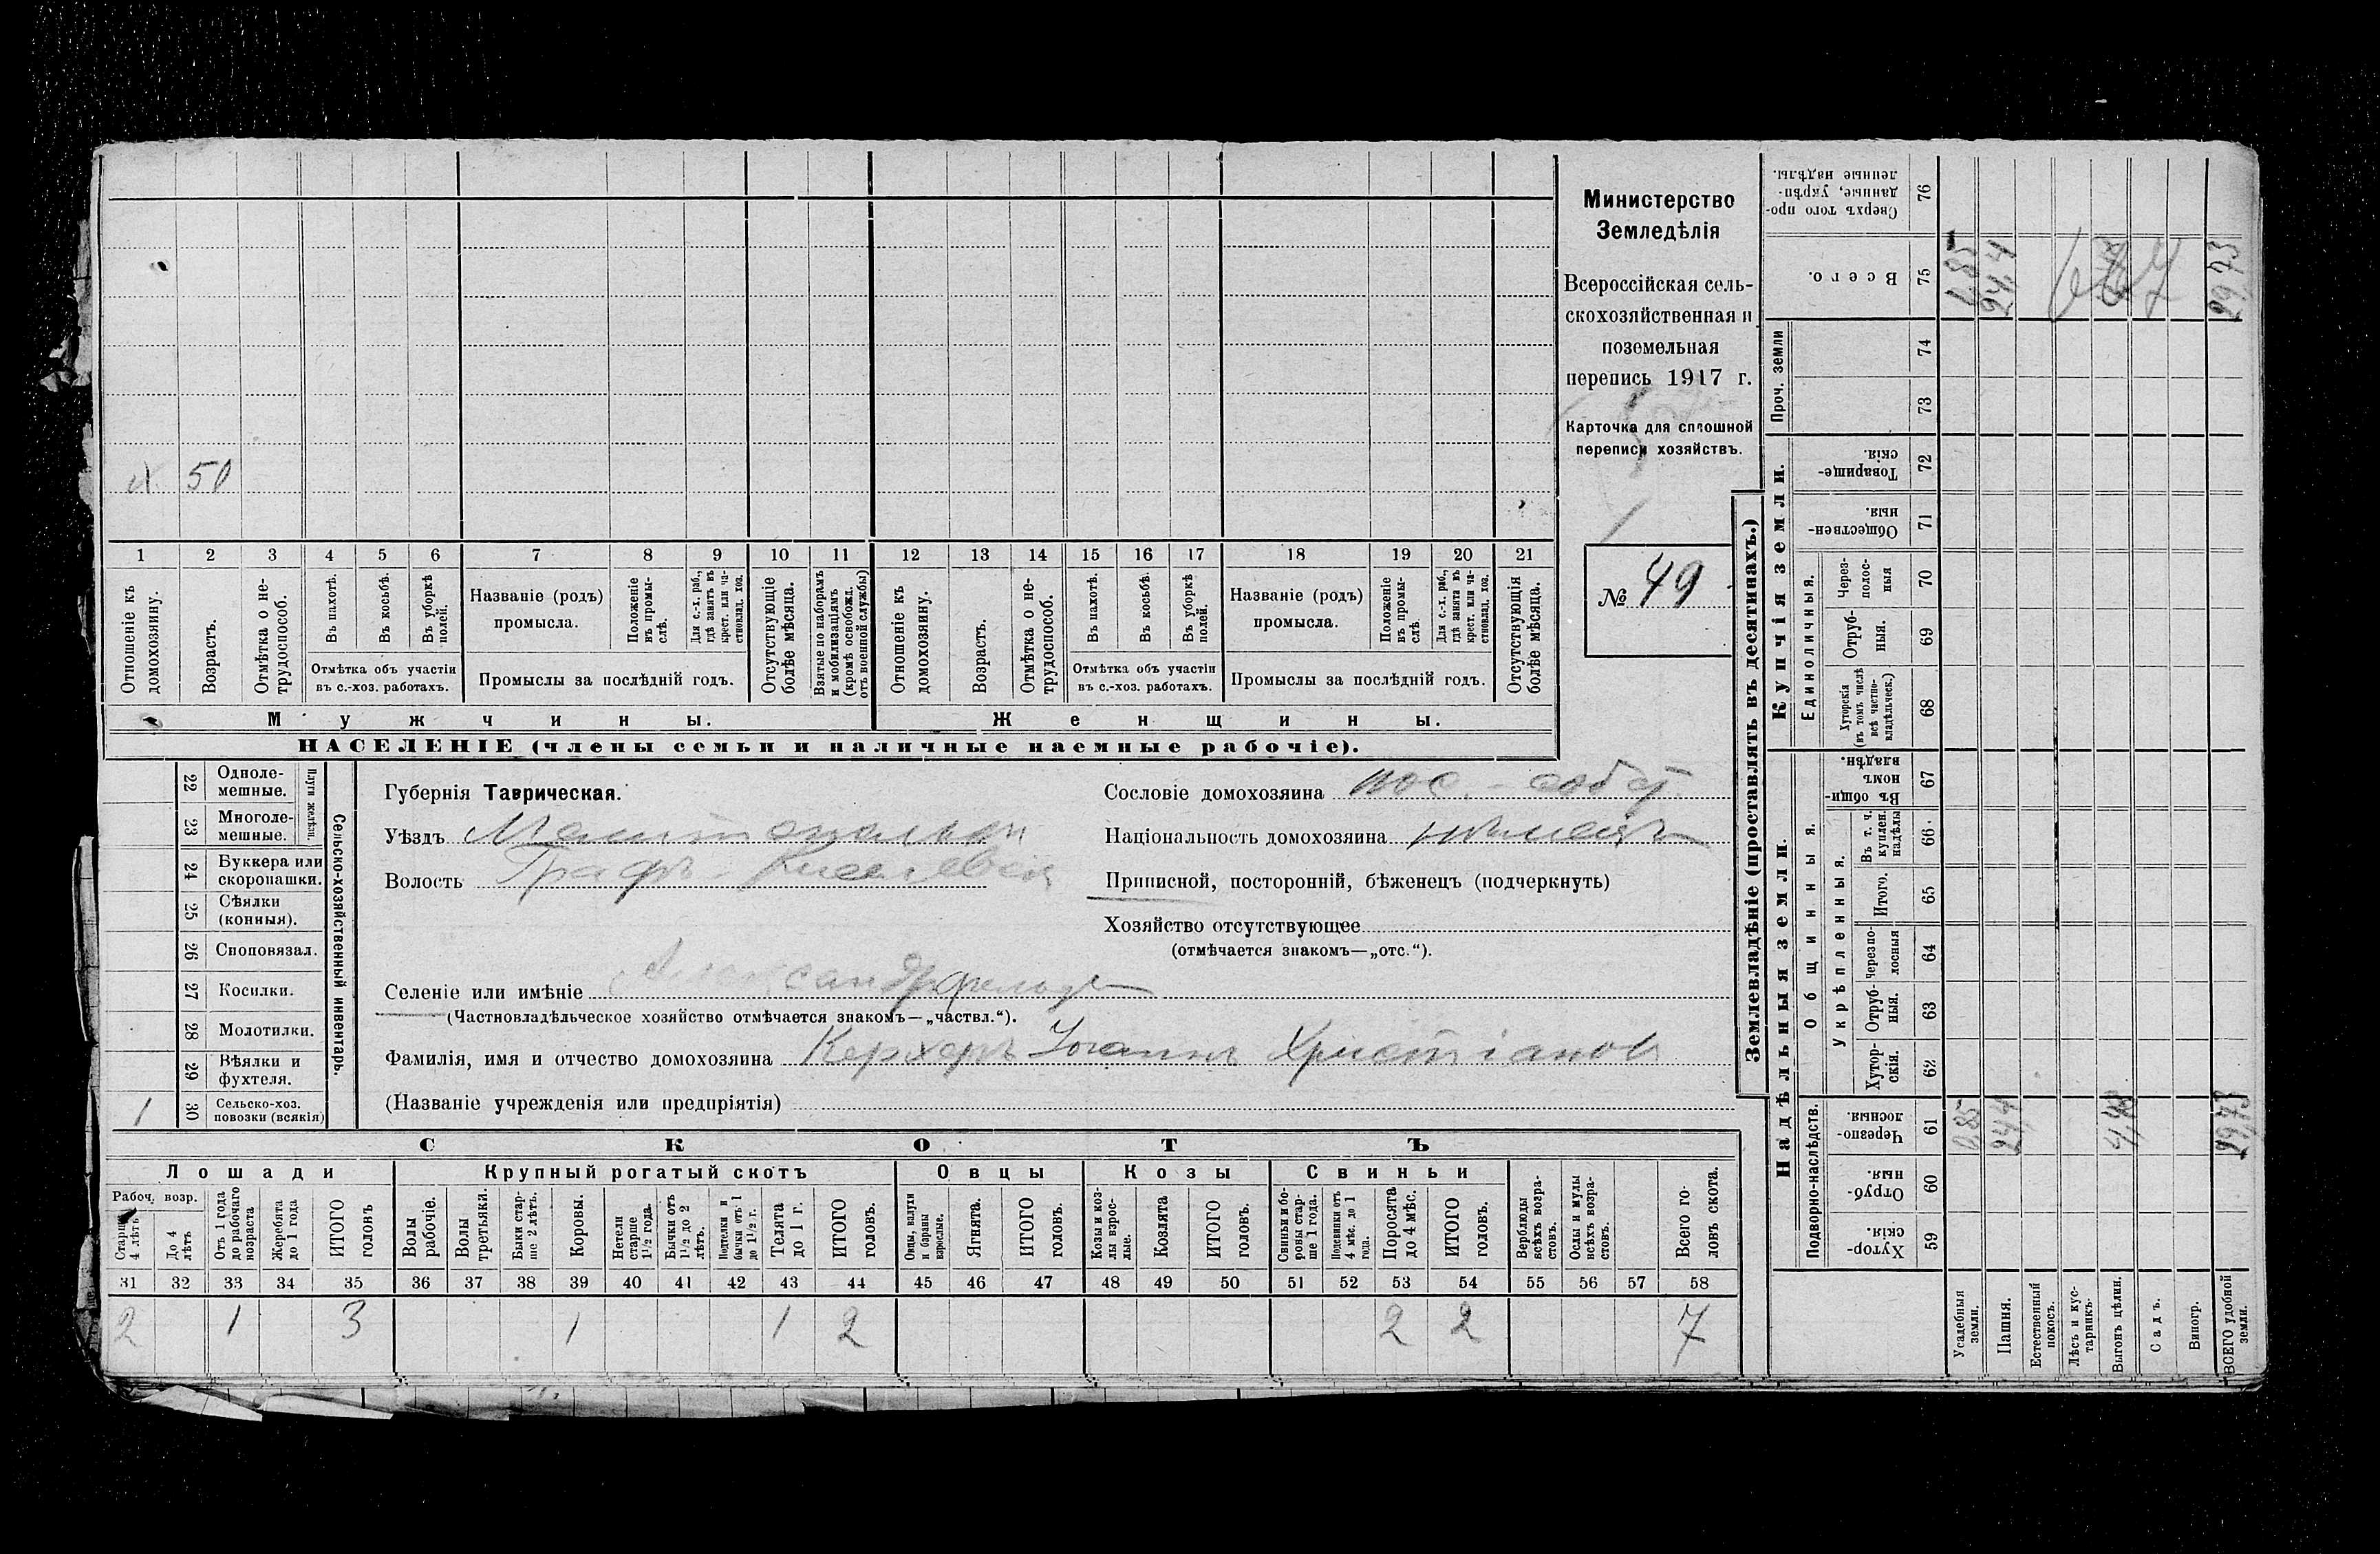 Министерство
Земледѣлія
Всероссійская сель-
скохозяйственная и
поземельная
перепись 1917 г.
Карточка для сплошной
переписи хозяйствъ.
№ 49
х 50
1 2 3 4 5 6 7 8 9 10 11 12 13 14 15 16 17 18 19 20 21
Отношеніе къ домохозяину.
Возрастъ.
Отмѣтка о не-трудоспособ.
Въ пахотѣ.
Въ косьбѣ.
Въ уборкѣ полей.
Отмѣтка объ участіи
въ с.-хоз. работахъ.
Названіе (родъ)
промысла.
Положеніе въ промы-слѣ.
Для с.-х. раб., гдѣ занятъ въ крест. или ча-стновлад. хоз.
Промыслы за послѣдній годъ.
Отсутствующіе болѣе мѣсяца.
Взятые по наборамъ и мобилизаціямъ (кромѣ освобожд. отъ военной службы)
Отношеніе къ домохозяину.
Возрастъ.
Отмѣтка о не-трудоспособ.
Въ пахотѣ.
Въ косьбѣ.
Въ уборкѣ полей.
Отмѣтка объ участіи
въ с.-хоз. работахъ.
Названіе (родъ)
промысла.
Положеніе въ промы-слѣ
Для с.-х. раб., гдѣ занята въ крест. или ча-стновлад. хоз.
Промыслы за послѣдній годъ.
Отсутствующія болѣе мѣсяца.
Мужчины.
Женщины.
НАСЕЛЕНІЕ (члены семьи и наличные наемные рабочіе).
22 Одноле-мешные.
23 Многоле-мешные.
Плуги желѣзн.
24 Буккера или скоропашки.
25 Сѣялки (конныя).
26 Сноповязал.
27 Косилки.
28 Молотилки.
29 Вѣялки и фухтеля.
1 30 Сельско-хоз. повозки (всякія)
Сельско-хозяйственный инвентарь.
Губернія Таврическая.
Уѣздъ Мелитопольск
Волость Графъ-Киселевск
Сословіе домохозяина пос.-собст.
Національность домохозяина нѣмецъ
Приписной, посторонній, бѣженецъ (подчеркнуть)
Хозяйство отсутствующее
(отмѣчается знакомъ—„отс.“).
Селеніе или имѣніе Александрфельдъ
(Частновладѣльческое хозяйство отмѣчается знакомъ—„частвл.“).
Фамилія, имя и отчество домохозяина Керхеръ Іоганнъ Христіанов
(Названіе учрежденія или предпріятія)
СКОТЪ
Лошади
Крупный рогатый скотъ
Овцы
Козы
Свиньи
Рабоч. возр.
Старше 4 лѣтъ
До 4 лѣтъ
Отъ 1 года до рабочаго возраста
Жеребята до 1 года
ИТОГО головъ
Волы рабочіе.
Волы третьяки.
Быки стар-ше 2 лѣтъ.
Коровы.
Нетели старше 1½ года.
Бычки отъ 1½ до 2 лѣтъ.
Подтелки и бычки отъ 1 до 1½ г.
Телята до 1 г.
ИТОГО головъ.
Овцы, валухи и бараны взрослые.
Ягнята.
ИТОГО головъ.
Козы и коз-лы взрос-лые.
Козлята
ИТОГО головъ.
Свиньи и бо-ровы стар-ше 1 года.
Подсвинки отъ 4 мѣс. до 1 года.
Поросята до 4 мѣс.
ИТОГО головъ.
Верблюды всѣхъ возра-стовъ.
Ослы и мулы всѣхъ возра-стовъ.
Всего го-ловъ скота.
31 32 33 34 35 36 37 38 39 40 41 42 43 44 45 46 47 48 49 50 51 52 53 54 55 56 57 58
2 1 3 1 1 2 2 2 7
Землевладѣніе (проставлять въ десятинахъ.)
Надѣльныя земли.
Купчія земли.
Проч. земли
Подворно-наслѣдств.
Общинныя.
Укрѣпленныя.
Единоличныя.
Сверхъ того про-данные, укрѣп-ленные надѣлы. 76
Всего. 75 24,4 29,73
74
73
Товарище-скія. 72
Обществен-ныя. 71
Через-полос-ныя 70
Отруб-ныя. 69
Хуторскія (въ томъ числѣ всѣ частно-владѣльческ.) 68
Въ общи-номъ владѣн. 67
Въ т. ч. куплен. надѣлы 66
Итого. 65
Черезпо-лосныя 64
Отруб-ныя. 63
Хутор-скія. 62
Черезпо-лосныя. 61 0,85 24,4 4,48 29,73
Отруб-ныя. 60
Хутор-скія. 59
Усадебныя земли.
Пашня.
Естественный покосъ.
Лѣсъ и кус-тарникъ.
Выгонъ цѣлин.
Садъ.
Виногр.
ВСЕГО удобной земли.